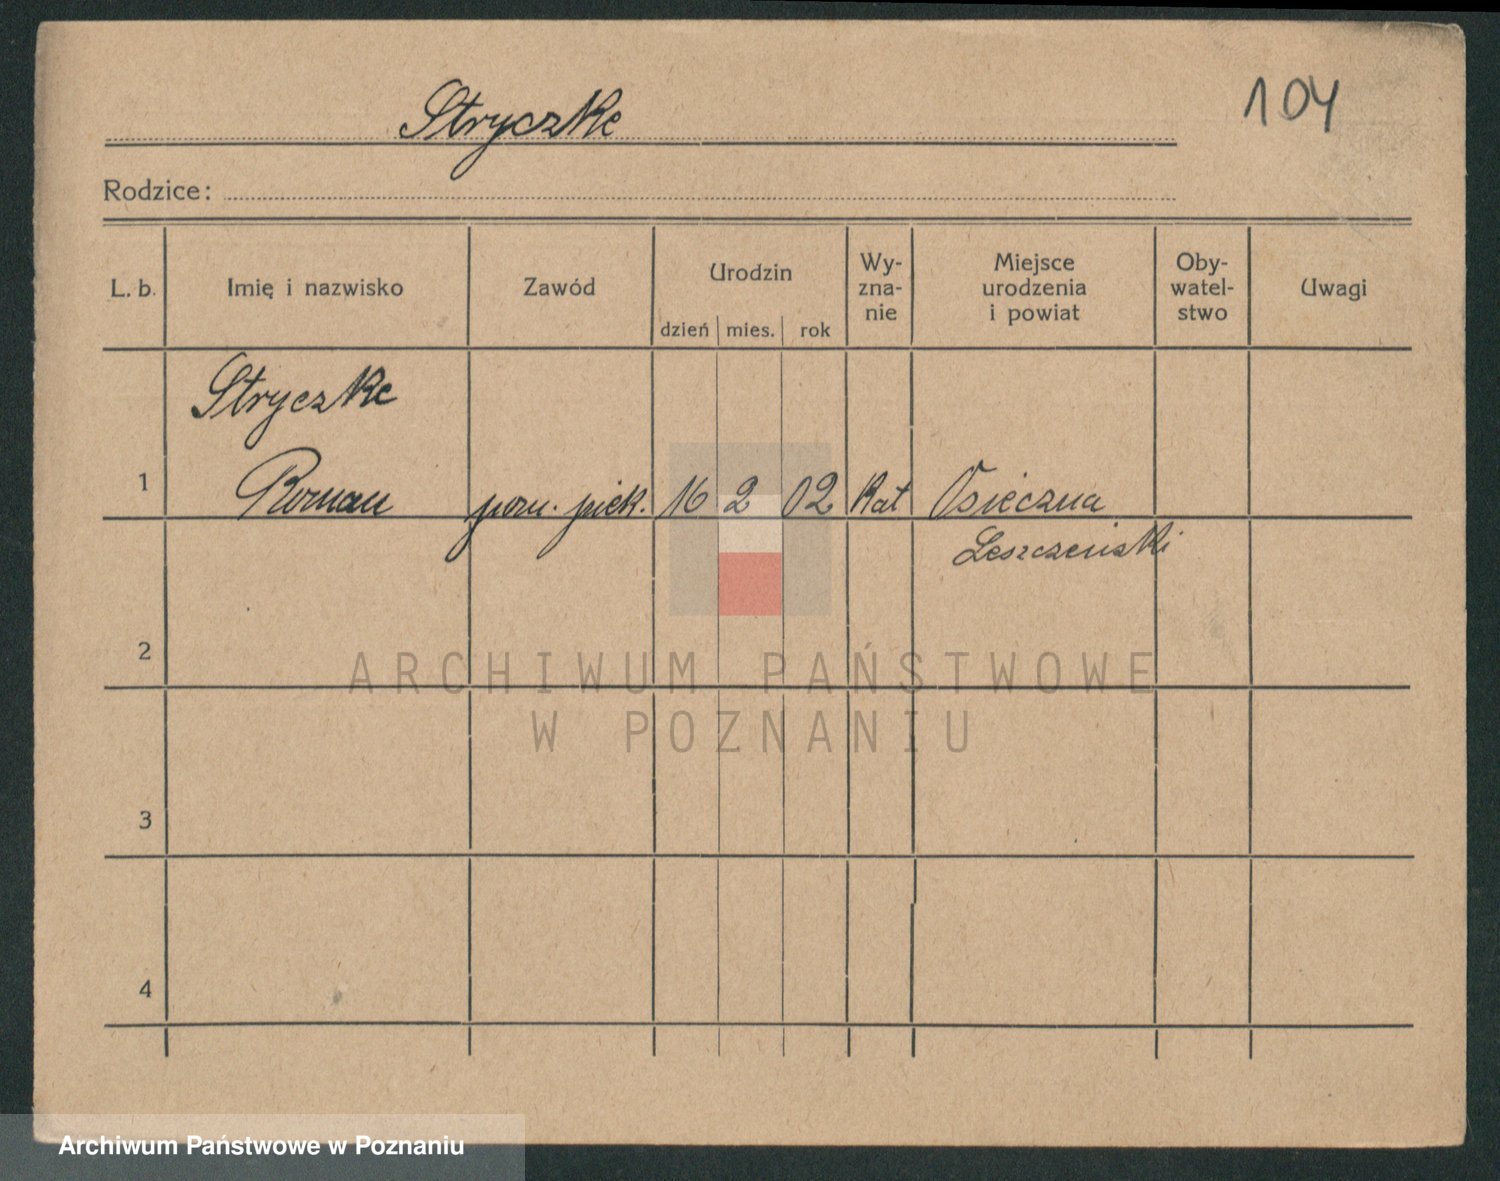 Stryczke
104
Rodzice:
L. b.
Imię i nazwisko
Zawód
Urodzin
dzień
mies.
rok
Wy-
zna-
nie
Miejsce
urodzenia
i powiat
Oby-
watel-
stwo
Uwagi
Stryczke
1 Roman pom. piek. 16 2 02 Kat Osieczna
Leszczeński
2
3
4
ARCHIWUM PAŃSTWOWE
W POZNANIU
Archiwum Państwowe w Poznaniu